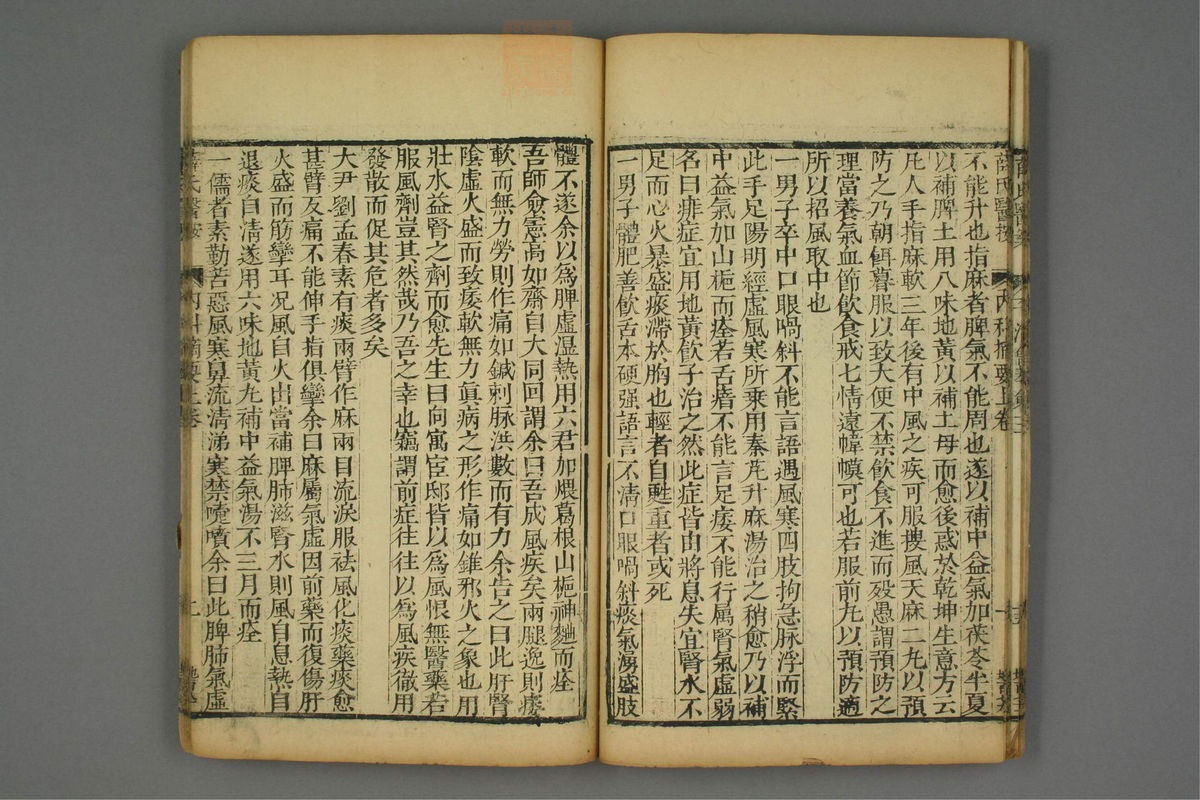 不能升也指麻者脾氣不能周也遂以補中益氣加茯苓半夏
以補脾土用八味地黃以補土母而愈後惑於乾坤生意方云
凡人手指麻軟三年後有中風之疾可服搜風天麻二丸以預
防之乃朝餌暮服以致大便不禁飲食不進而歿愚謂預防之
理當養氣血節飲食戒七情遠幃幙可也若服前丸以預防適
所以招風取中也
一男子卒中口眼喎斜不能言語遇風寒四肢拘急脉浮而緊
此手足陽明經虛風寒所乘用秦艽升麻湯治之稍愈乃以補
中益氣加山梔而痊若舌瘖不能言足痿不能行属腎氣虛弱
名曰痱症宜用地黃飲子治之然此症皆由將息失宜腎水不
足而心火暴盛痰滯於胸也輕者自甦重者或死
一男子體肥善飲舌本硬强語言不清口眼喎斜痰氣湧盛肢
體不遂余以為脾虛湿熱用六君加煨葛根山梔神麯而痊
吾師愈憲高如齋自大同回謂余曰吾成風疾矣兩腿逸則痿
軟而無力勞則作痛如鍼刺脉洪數而有力余告之曰此肝腎
陰虛火盛而致痿軟無力眞病之形作痛如錐邪火之象也用
壯水益腎之劑而愈先生曰向寓宦邸皆以為風恨無醫藥若
服風劑豈其然哉乃吾之幸也竊謂前症往往以為風疾徹用
發散而促其危者多矣
大尹劉孟春素有痰兩臂作麻兩目流淚服祛風化痰藥痰愈
甚臂反痛不能伸手指俱攣余曰麻屬氣虛因前藥而復傷肝
火盛而筋攣耳况風自火出當補脾肺滋腎水則風自息熱自
退痰自清遂用六味地黃丸補中益氣湯不三月而痊
一儒者素勤苦惡風寒鼻流清涕寒禁嚏噴余曰此脾肺氣虛
薛氏醫按 內科摘要上卷 二